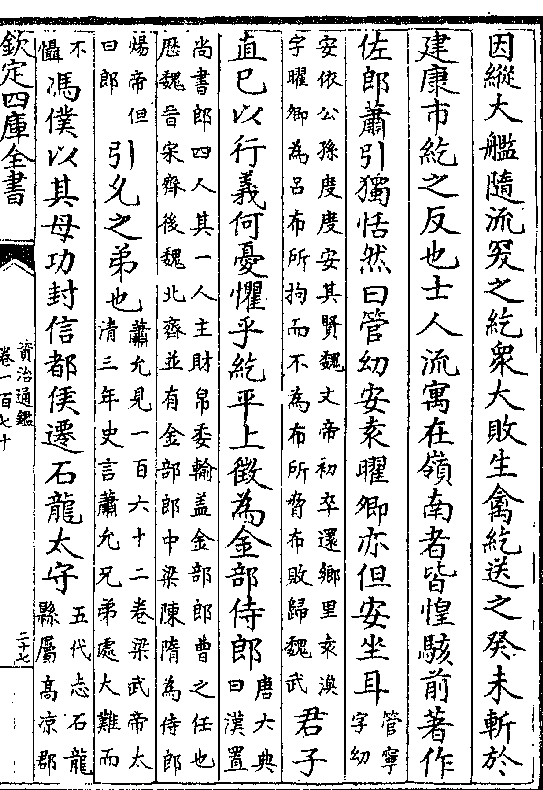 因縱大艦隨流突之紇衆大敗生禽紇送之癸未斬於
建康市紇之反也士人流寓在嶺南者皆惶駭前著作
佐郎蕭引獨恬然曰管幼安袁曜卿亦但安坐耳
管寧
字幼
安依公孫度度安其賢魏文帝初卒還鄉里袁渙
字曜卿為呂布所拘而不為布所脅布敗歸魏武
君子
直已以行義何憂懼乎紇平上徵為金部侍郎
唐大典
曰漢置
尚書郎四人其一人主財帛委輸盖金部郎曹之任也
歴魏晉宋齊後魏北齊並有金部郎中梁陳隋為侍郎
煬帝但
曰郎
引允之弟也
蕭允見一百六十二卷梁武帝太
清三年史言蕭允兄弟處大難而
不
懾
馮僕以其母功封信都侯遷石龍太守
五代志石龍
縣屬高凉郡
欽定四庫全書
資治通鑑
卷一百七十
二十七